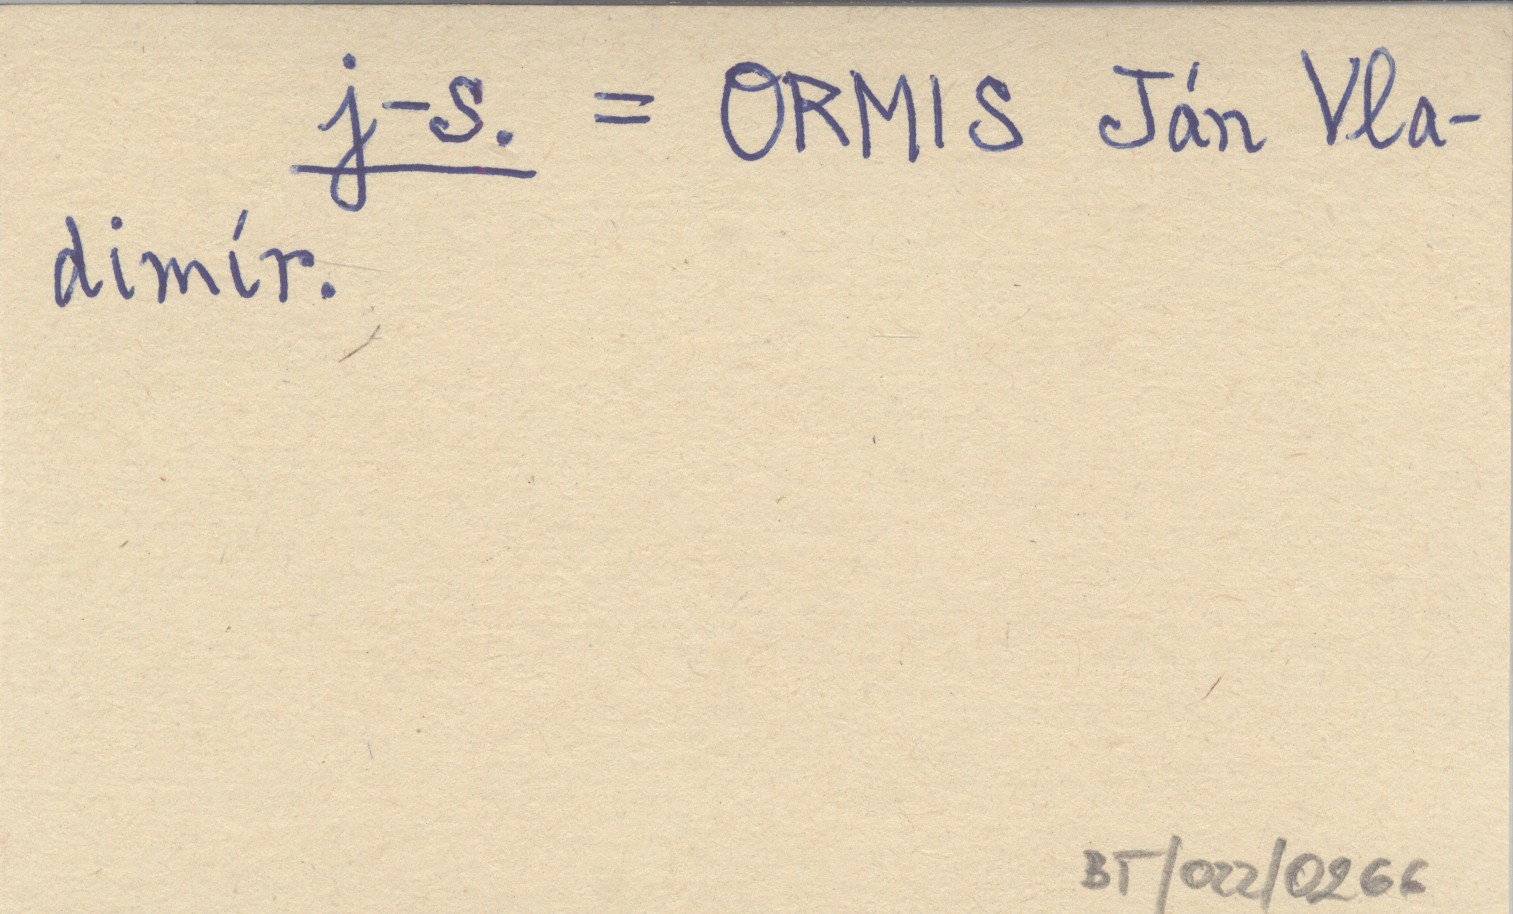 j-s. = ORMIS Ján Vla-
dimír.
BT/022/0266